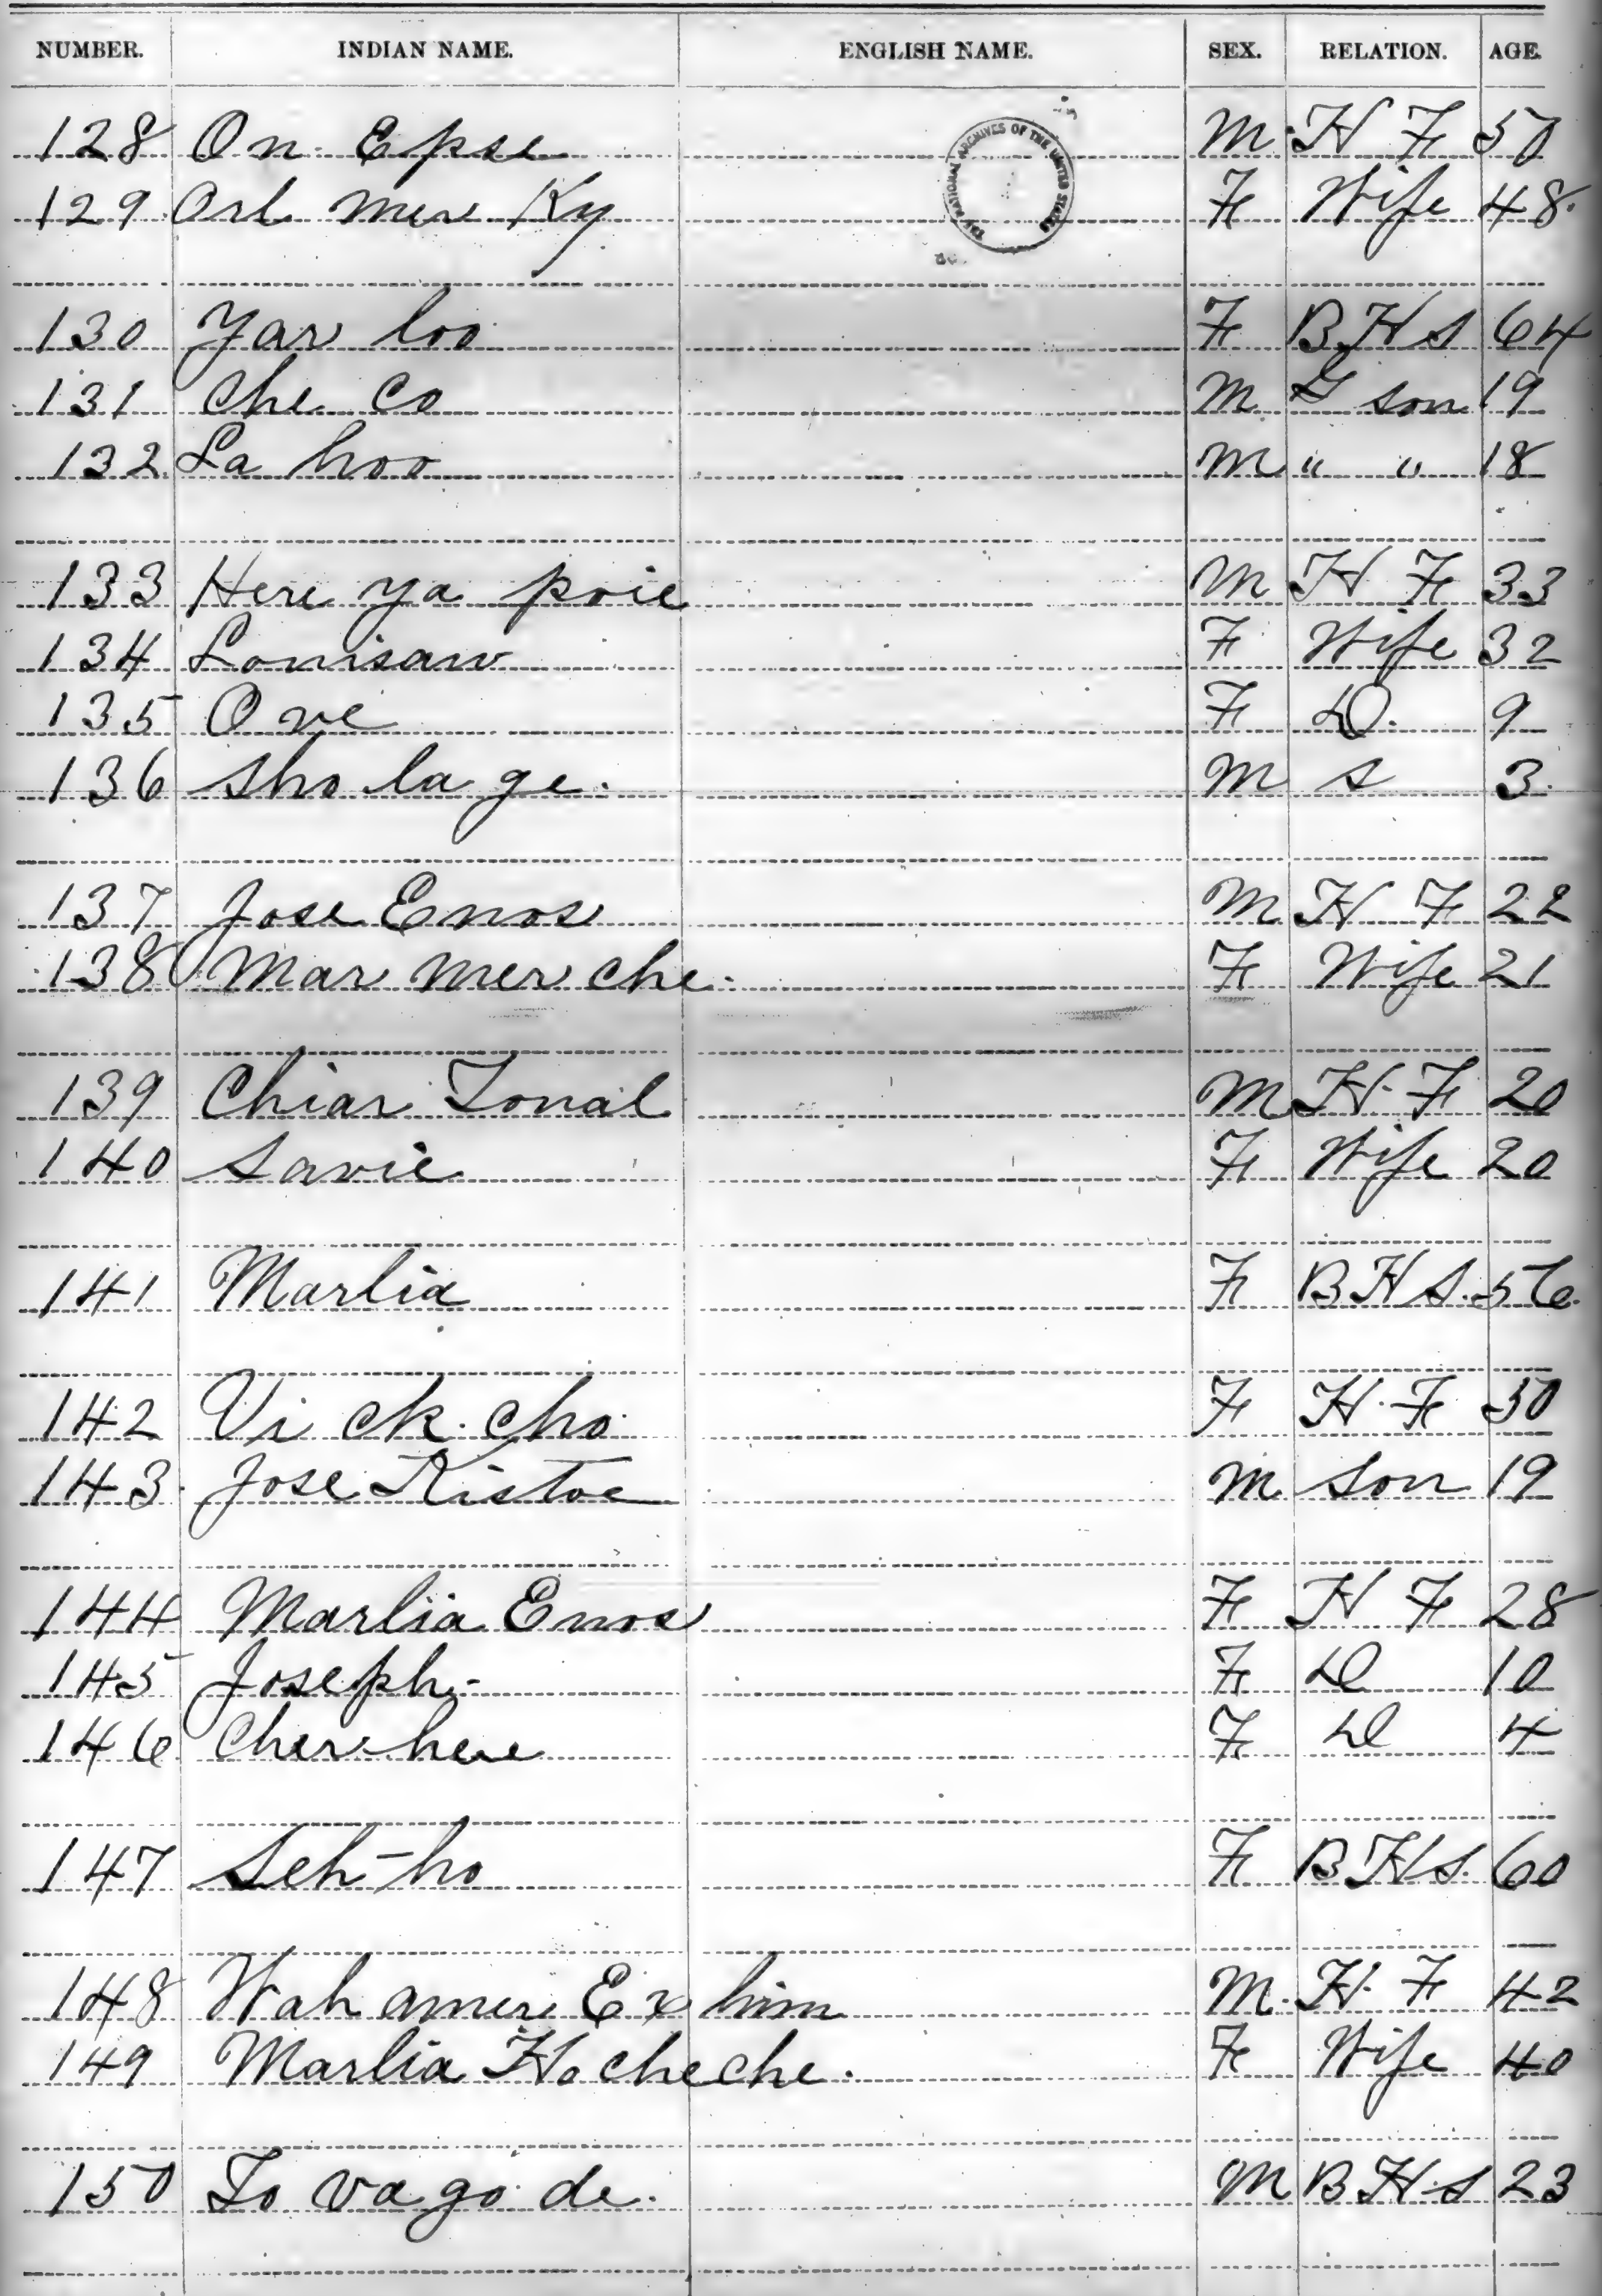 NUMBER. INDIAN NAME. ENGLISH NAME. SEX. RELATION. AGE.
THE NATIONAL ARCHIVES OF THE UNITED STATES
128 On Epse M. H F 50
129 Orl mer Ky F Wife 48.
130 Yar loo F B H S 64
131 Che Co M G son 19
132 La hoo M " " 18
133 Here ya poie M H F 33
134 Lonisaw F Wife 32
135 O ve F D. 9
136 Sho la ge. M S 3.
137 Jose Enos M H F 22
138 Mar mer che. F Wife 21
139 Chiar Tonal M H. F 20
140 Savie F Wife 20
141 Marlia F B H S. 56.
142 Vi ck cho F H. F 50
143 Jose Kistoe M Son 19
144 Marlia Enos F H F 28
145 Joseph- F D 10
146 Cher here F D 4
147 Seh-ho F B H S. 60
148 Wah amer Ex him M. H. F 42
149 Marlia Ho che che. F Wife 40
150 To va go de. M B H S 23